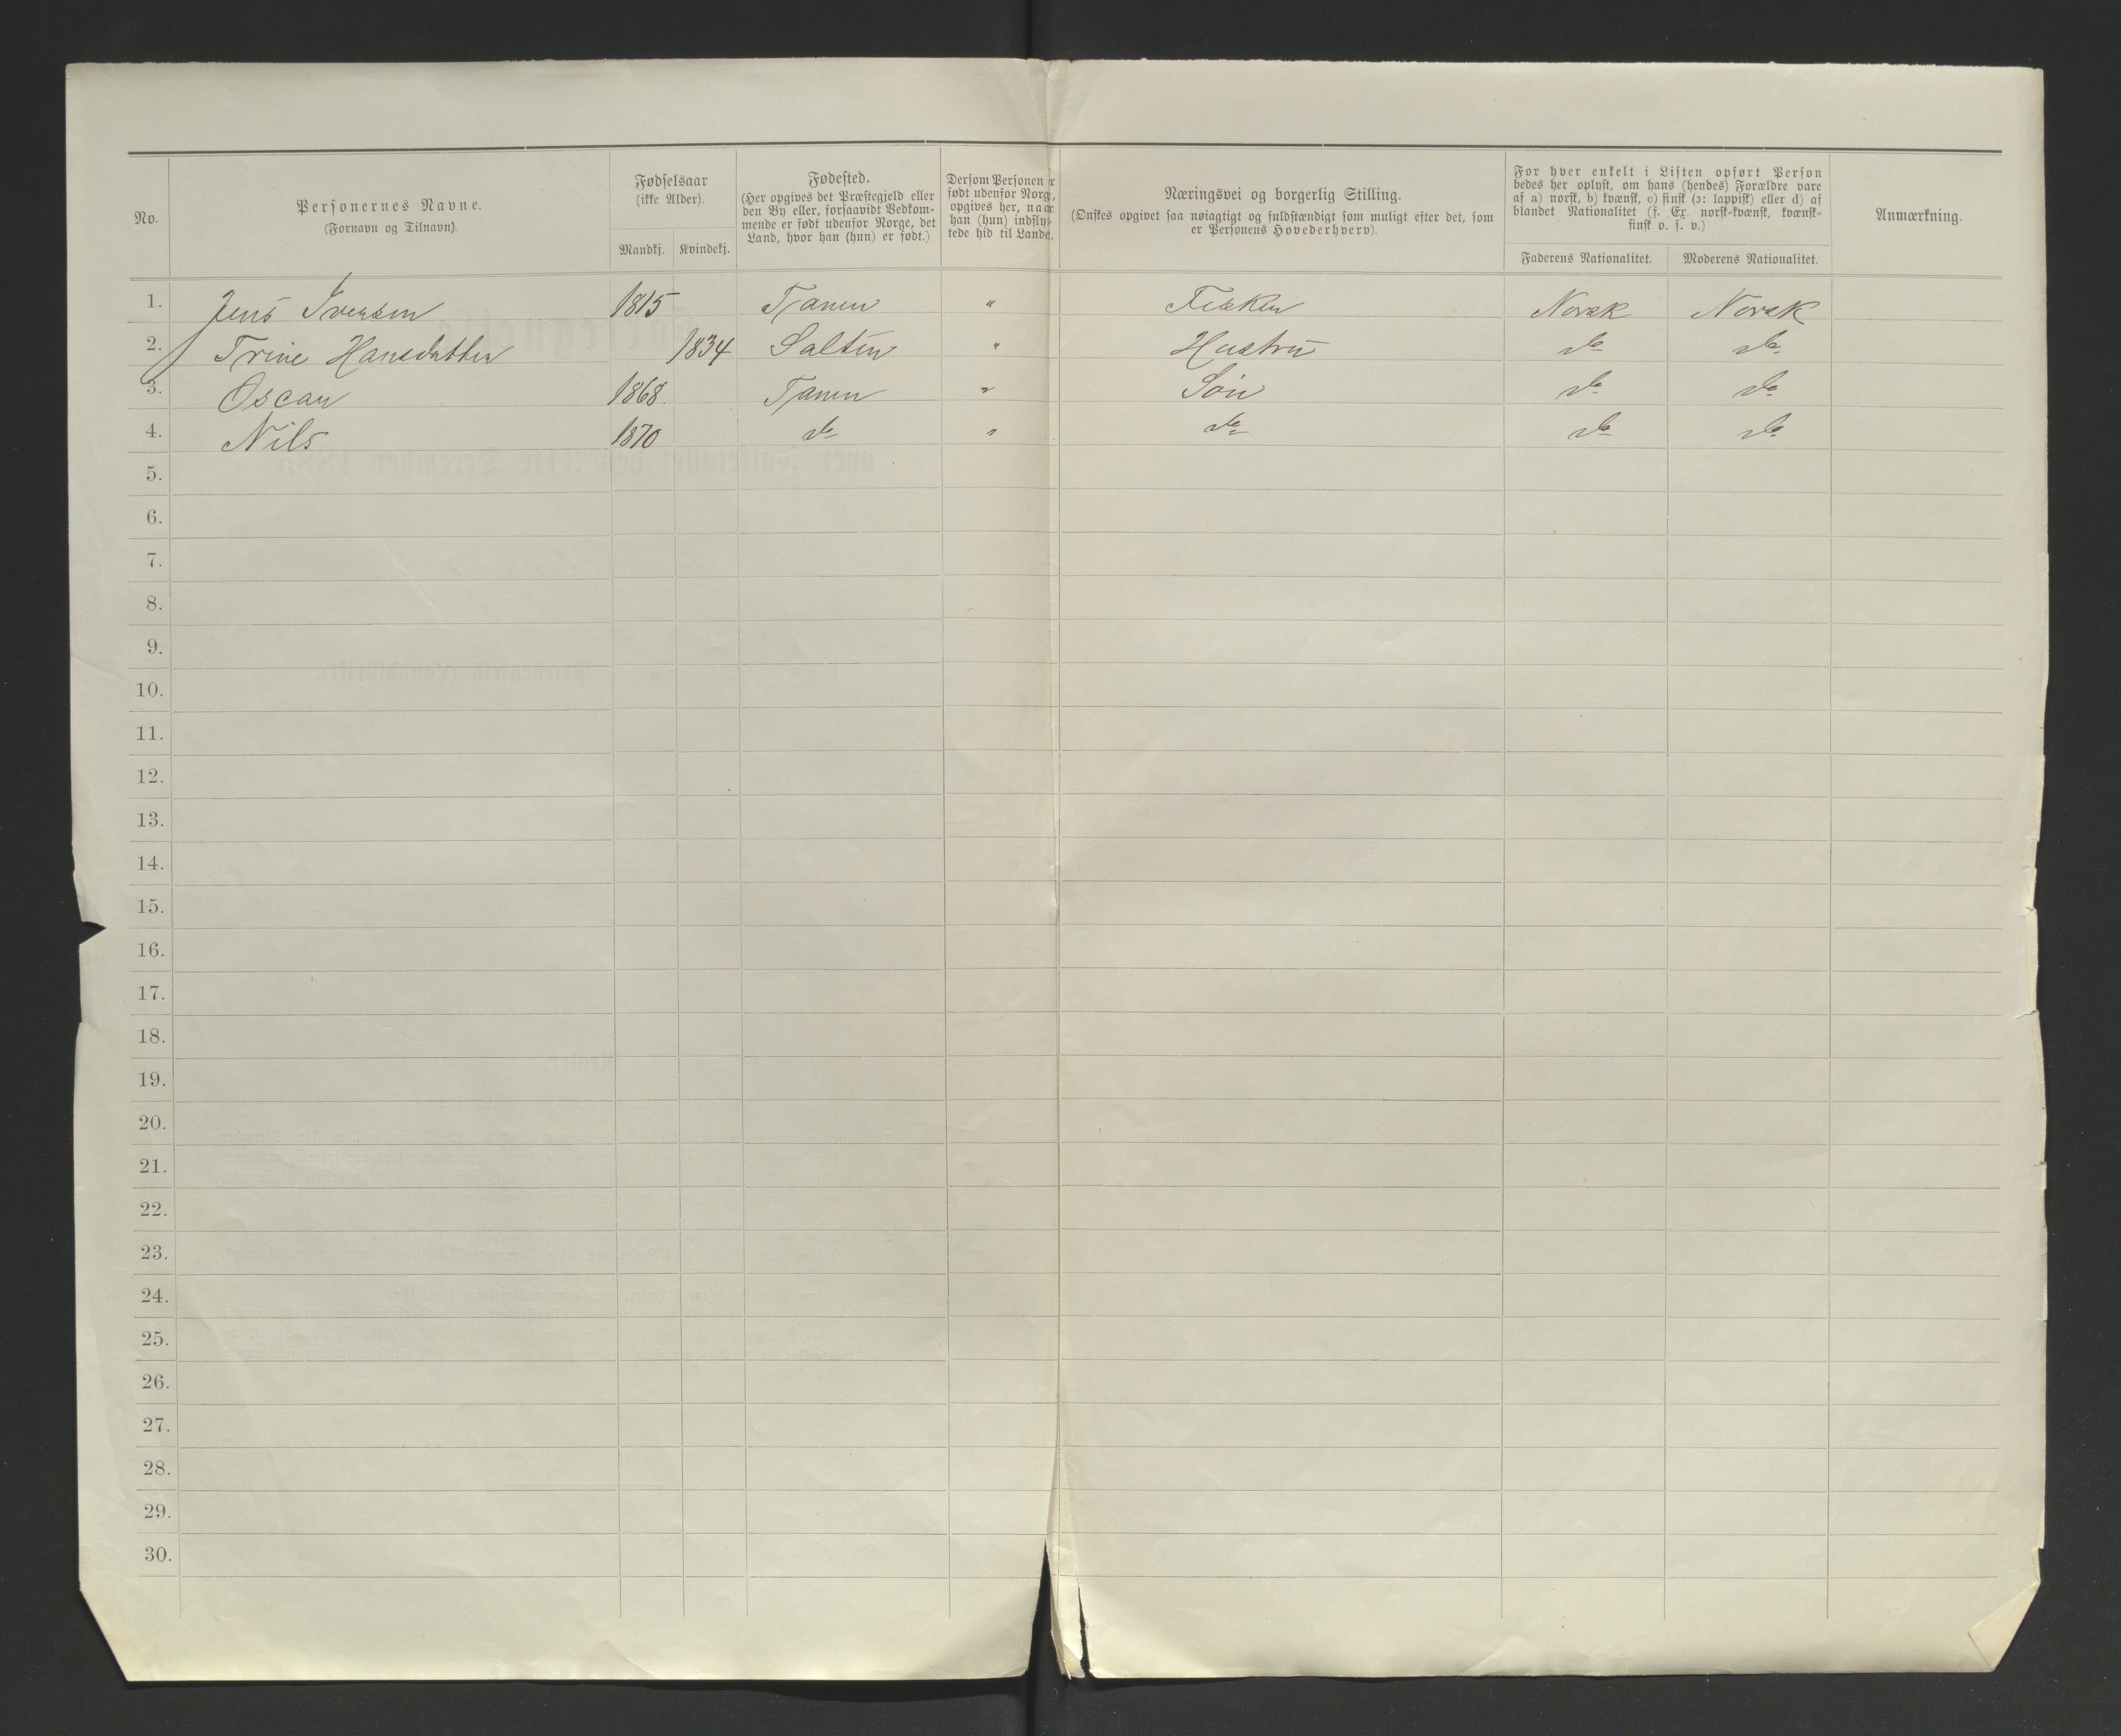 No.
Personernes Navne.
(Fornavn og Tilnavn).
Fødselsaar
(ikke Alder).
Mandkj. Kvindekj.
Fødested.
(Her opgives det Præstegjeld eller
den By eller, forsaavidt Vedkom-
mende er født udenfor Norge, det
Land, hvor han (hun) er født.)
Dersom Personen er
født udenfor Norge,
opgives her, naar
han (hun) indflyt-
tede hid til Landet.
Næringsvei og borgerlig Stilling.
(Ønskes opgivet saa nøiagtigt og fuldstændigt som muligt efter det, som
er Personens Hovederhverv).
For hver enkelt i Listen opført Person
bedes her oplyst, om hans (hendes) Forældre vare
af a) norsk, b) kvænsk, c) finsk (ɔ: lappisk) eller d) af
blandet Nationalitet (f. Ex. norsk-kvænsk, kvænsk-
finsk o. s. v.)
Faderens Nationalitet. Moderens Nationalitet.
Anmærkning.
1. Jens Iversen 1815 Tanen " Fisker Norsk Norsk
2. Trine Hansdatter 1834 Salten " Hustru do do
3. Oscar 1868 Tanen " Søn do do
4. Nils 1870 do " do do do
5.
6.
7.
8.
9.
10.
11.
12.
13.
14.
15.
16.
17.
18.
19.
20.
21.
22.
23.
24.
25.
26.
27.
28.
29.
30.